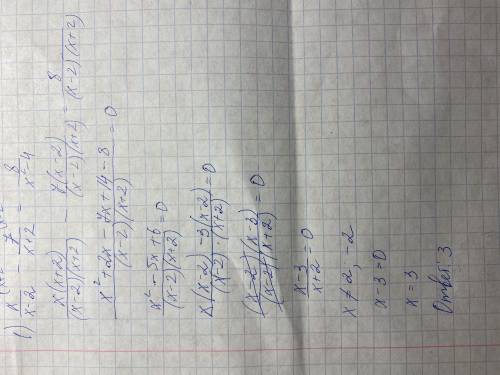 1) x/(x-2) - 7/(x+2) = 8/(x²-4)
x(x+2)/((x-2)(x+2)) - 7(x-2)/((x-2)(x+2)) = 8/((x-2)(x+2))
(x²+2x-7x+14-8)/((x-2)(x+2)) = 0
(x²-5x+6)/((x-2)(x+2)) = 0
(x(x-2)-3(x-2))/((x-2)·(x+2)) = 0
((x-2)(x-3))/((x-2)(x+2)) = 0
(x-3)/(x+2) = 0
x ≠ 2, -2
x-3=0
x = 3
Ответ: 3